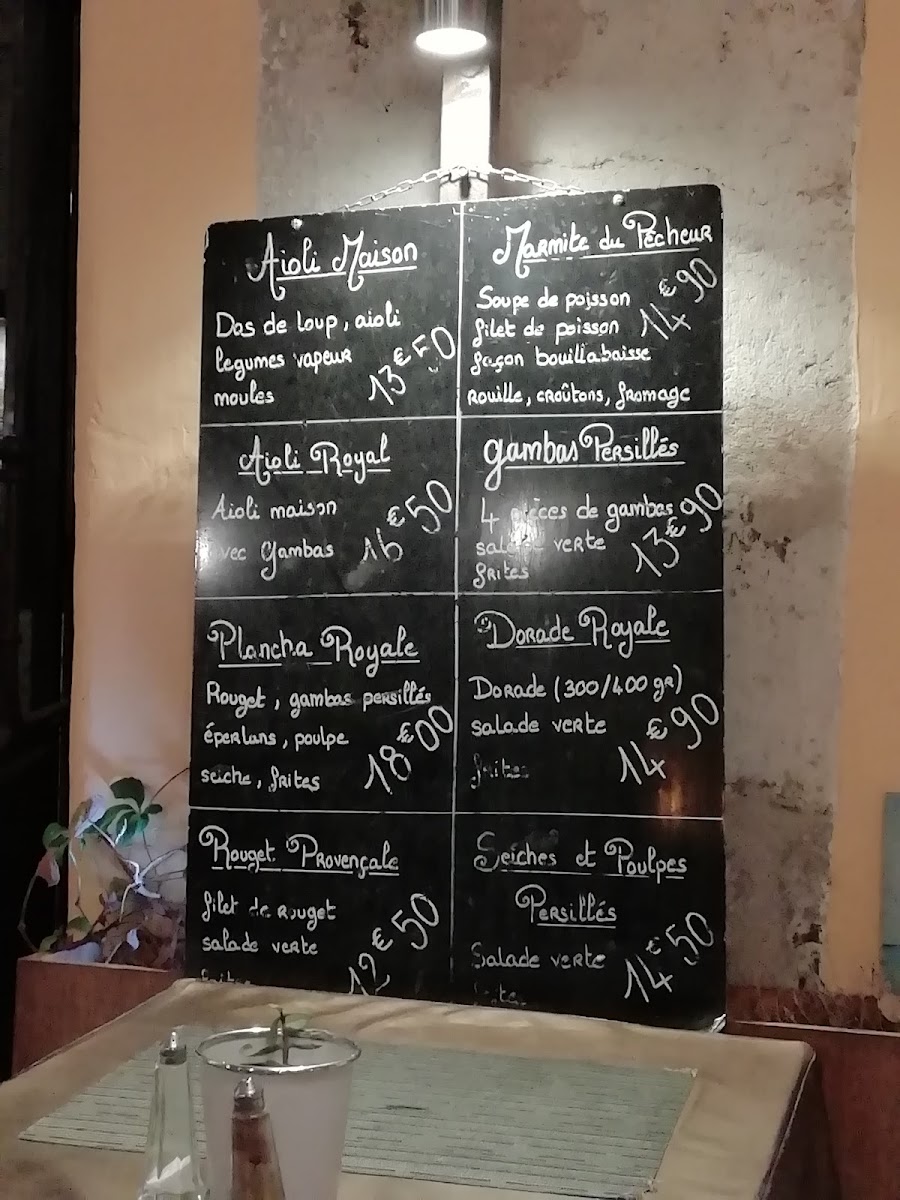 Aioli Maison
Das de Loup, aioli
legumes vapeur
moules
13€50
Marmite du Pêcheur
Soupe de poisson
filet de poisson
façon bouillabaisse
rouille, croûtons, fromage
14€90
Aioli Royal
Aioli maison
avec Gambas
16€50
Gambas Persillés
4 pièces de gambas
salade verte
frites
13€90
Plancha Royale
Rouget, gambas persillés
éperlans, poulpe
seiche, frites
18€00
Dorade Royale
Dorade (300/400 gr)
salade verte
frites
14€90
Rouget Provençale
filet de rouget
salade verte
frites
12€50
Seiches et Poulpes
Persillés
Salade verte
frites
14€50